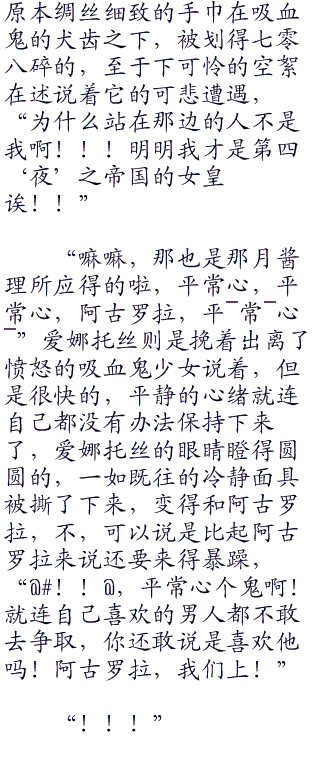 原本绸丝细致的手巾在吸血
鬼的犬齿之下，被划得七零
八碎的，至于下可怜的空絮
在述说着它的可悲遭遇，
“为什么站在那边的人不是
我啊！！！明明我才是第四
‘夜’之帝国的女皇
诶！！”
“嘛嘛，那也是那月酱
理所应得的啦，平常心，平
常心，阿古罗拉，平¯常¯心
¯”爱娜托丝则是挽着出离了
愤怒的吸血鬼少女说着，但
是很快的，平静的心绪就连
自己都没有办法保持下来
了，爱娜托丝的眼睛瞪得圆
圆的，一如既往的冷静面具
被撕了下来，变得和阿古罗
拉，不，可以说是比起阿古
罗拉来说还要来得暴躁，
“@#！！@，平常心个鬼啊！
就连自己喜欢的男人都不敢
去争取，你还敢说是喜欢他
吗！阿古罗拉，我们上！”
“！！！”